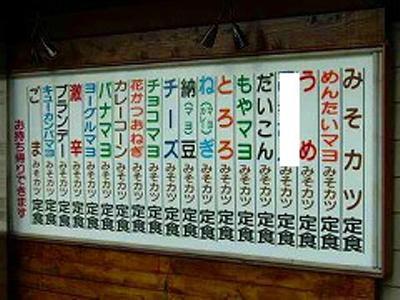 みそカツ定食
めんたいマヨみそカツ定食
うめみそカツ定食
みそカツ定食
だいこんみそカツ定食
もやマヨみそカツ定食
とろろみそカツ定食
ねぎみそカツ定食
納豆(マヨ)みそカツ定食
チーズみそカツ定食
チョコマヨみそカツ定食
花かつおねぎみそカツ定食
カレーコーンみそカツ定食
バナマヨみそカツ定食
ヨーグルマヨみそカツ定食
激辛みそカツ定食
ブランデーみそカツ定食
キューカンバマヨみそカツ定食
ごまみそカツ定食
お持ち帰りできます